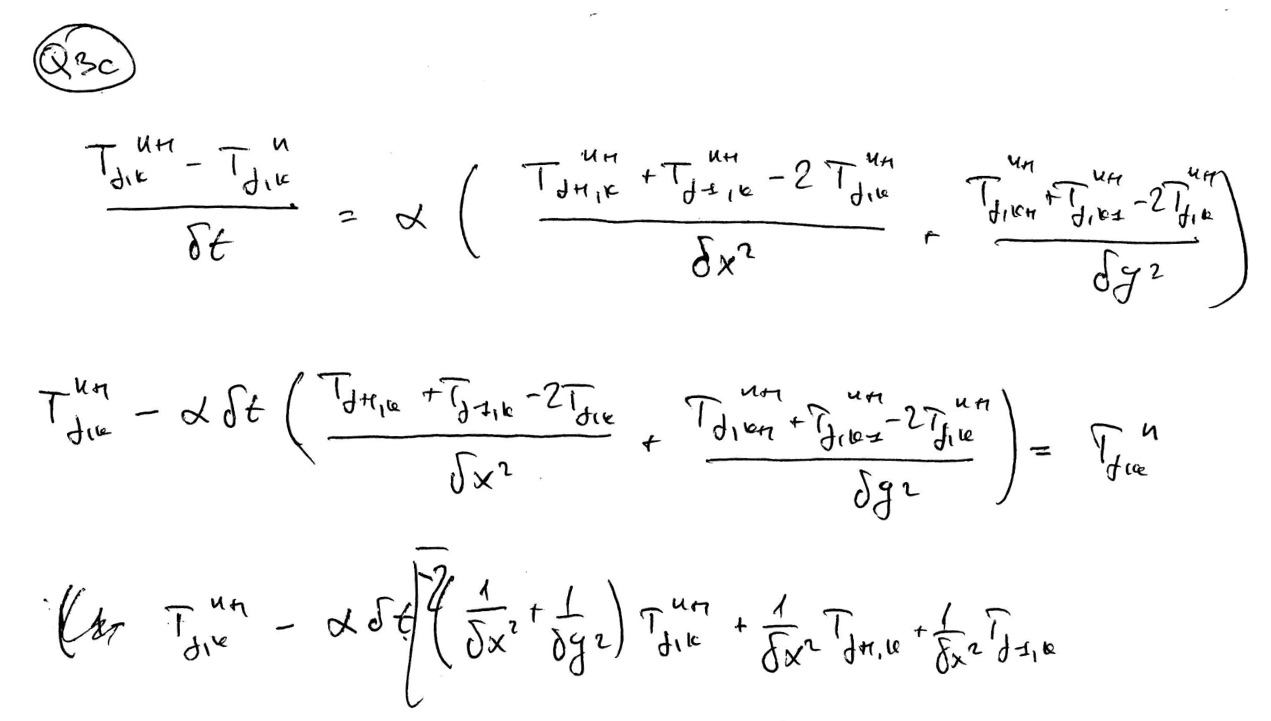 Q3c
\frac{T_{j,k}^{n+1} - T_{j,k}^{n}}{δt} = α ( \frac{T_{j+1,k}^{n+1} + T_{j-1,k}^{n+1} - 2 T_{j,k}^{n+1}}{δx^2} + \frac{T_{j,k+1}^{n+1} + T_{j,k-1}^{n+1} - 2T_{j,k}^{n+1}}{δy^2} )
T_{j,k}^{n+1} - α δt ( \frac{T_{j+1,k} + T_{j-1,k} - 2T_{j,k}}{δx^2} + \frac{T_{j,k+1}^{n+1} + T_{j,k-1}^{n+1} - 2T_{j,k}^{n+1}}{δy^2} ) = T_{j,k}^{n}
( T_{j,k}^{n+1} - α δt [ -2 ( \frac{1}{δx^2} + \frac{1}{δy^2} ) T_{j,k}^{n+1} + \frac{1}{δx^2} T_{j+1,k} + \frac{1}{δx^2} T_{j-1,k}